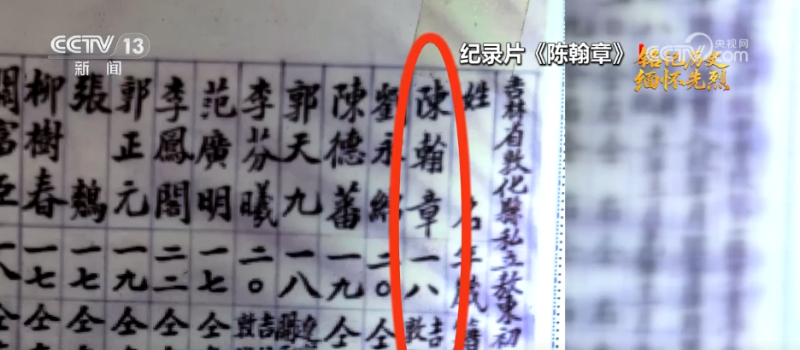 CCTV 13
新闻
纪录片《陈翰章》
央视网
铭记历史
缅怀先烈
吉林省敦化縣私立敖東初
姓名年歲籍
陳翰章一八吉敦
劉永二〇仝
陳德蕃一九仝
郭天九一八
李芬曦二〇吉敦
范廣明一七仝
李鳳閣二二仝
郭正元一九仝
張一七仝
柳樹春一七仝
富一八